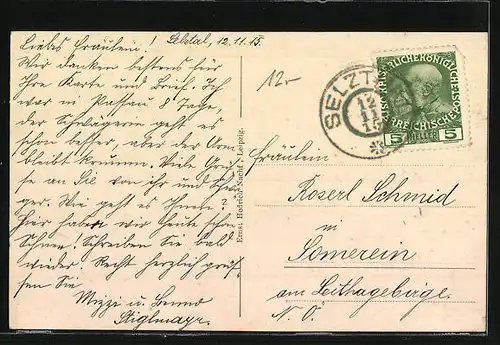 Selztal, 12.11.15.
Liebes Fräulein!
Wir danken bestens für
Ihre Karte und Brief. Ich
war in Passau 8 Tage,
der Schwägerin geht es
schon besser, aber der Arm
bleibt krumm. Viele Grüs-
se an Sie von ihr und Schwa-
ger. Wie geht es Ihnen?
Hier haben wir heute schon
Schnee! Schreiben Sie bald
wieder. Recht herzlich grüs-
sen Sie
Mizzi u. Benno
Stiglmayr.
12-
Ernst Hedrich Nachf., Leipzig.
SELZT
12
11
15
KAISERLICHEKÖNIGLICHE
ÖSTERREICHISCHE POST
5 HELLER 5
Fräulein
Roserl Schmid
in
Somerein
am Leithagebirge.
N. Ö.